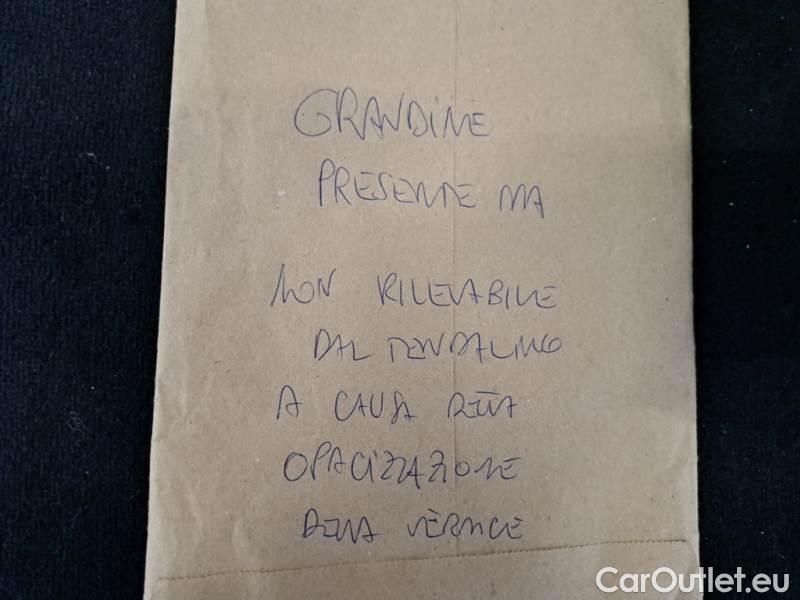 GRANDINE
PRESENTE MA
NON RILEVABILE
DAL TENDALINO
A CAUSA DELLA
OPACIZZAZIONE
DELLA VERNICE
CarOutlet.eu